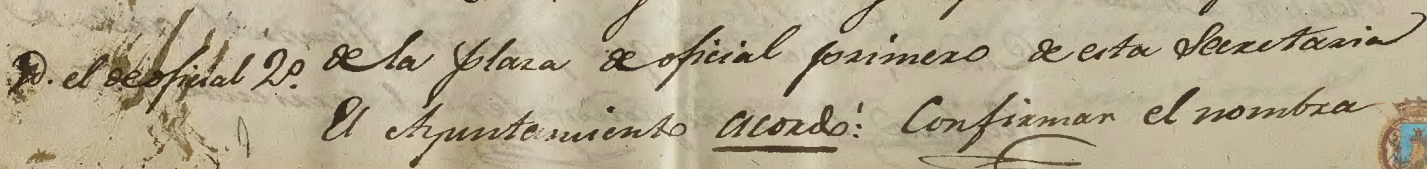 Yd. el de oficial 2º.
de la plaza de oficial primero de esta Secretaria
El Ayuntamiento acordó: Confirmar el nombra